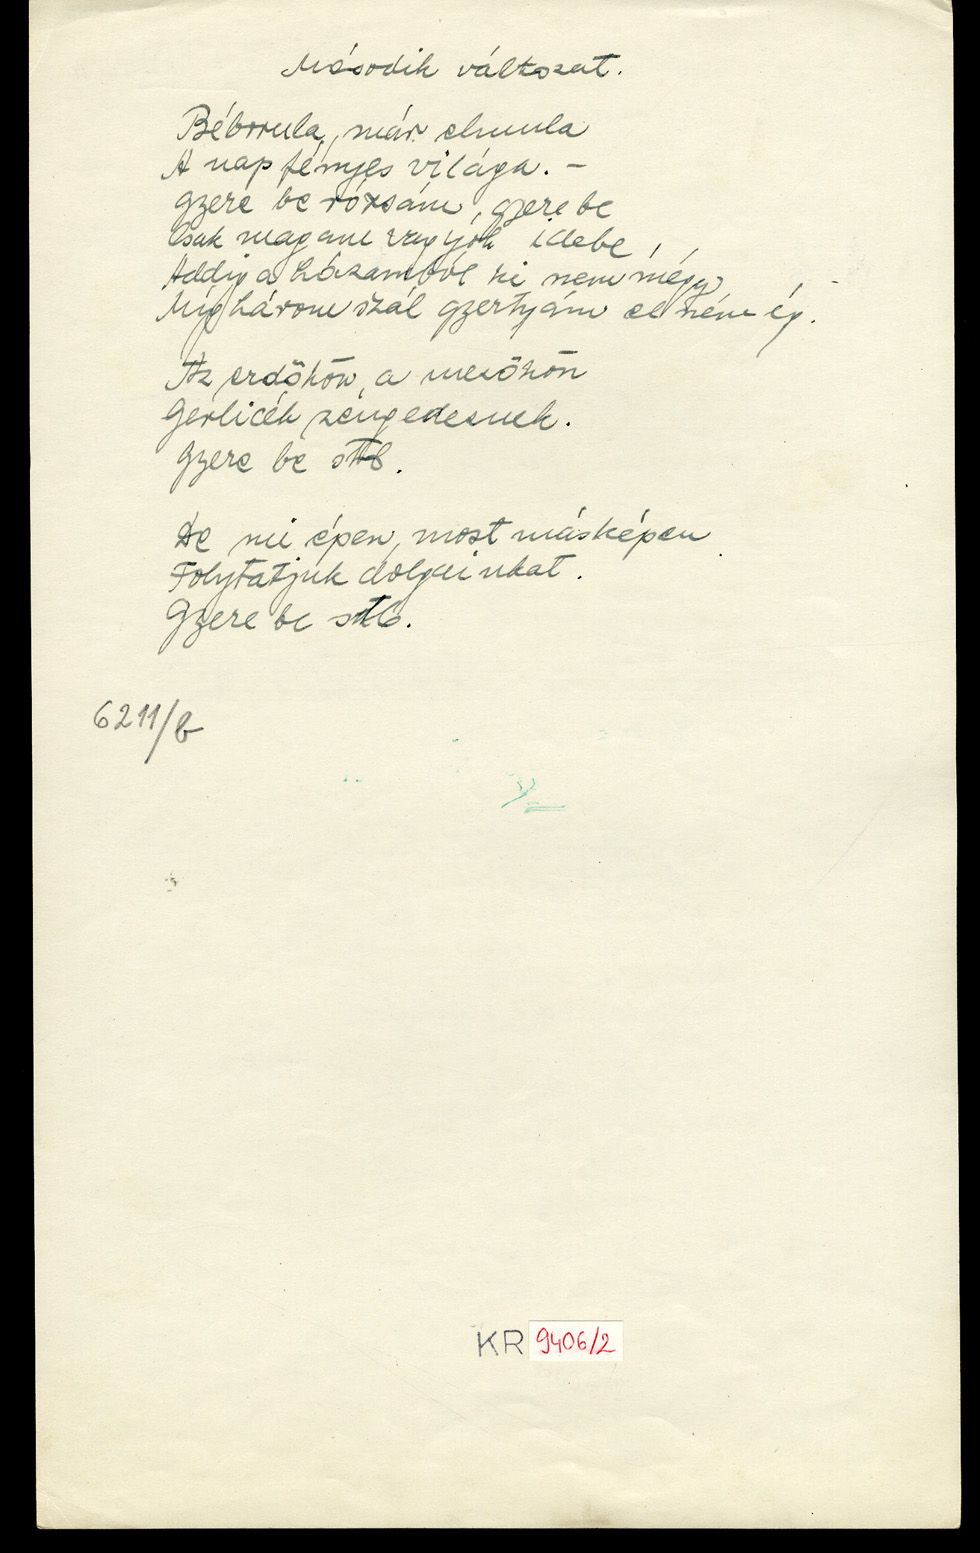 Második változat.
Béborula, már elmula
A nap fényes világa. –
Gyere be rózsám, gyere be
Csak magam vagyok idebe,
Addig a házamból ki nem mégy,
Mig három szál gyertyám el ném ég.
Az erdőkön, a mezőkön
Gerlicék zengedeznek.
Gyere be stb.
De mi épen, most másképen
Folytatjuk dolgainkat.
Gyere be stb.
6211/b
KR 9406/2